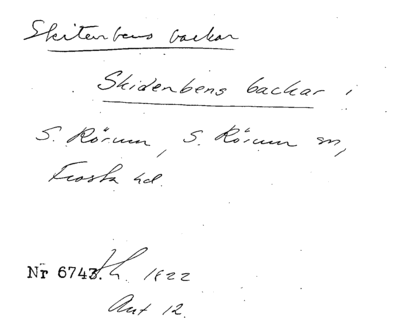 Skitenbens backar
Skidenbens backar i
S. Rörum, S. Rörum sn,
Frosta hd.
Nr 6743. Lh. 1822
Akt 12.